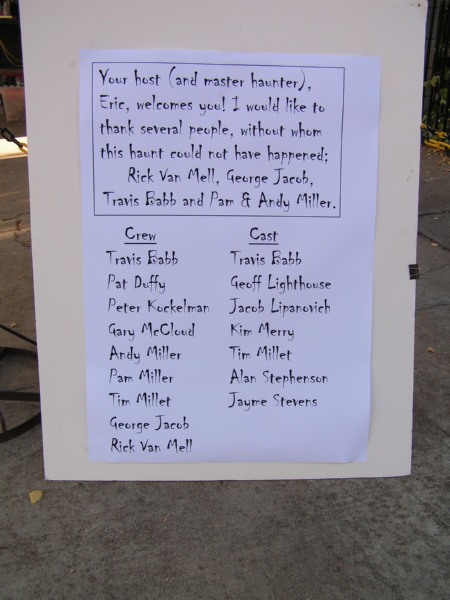 Your host (and master haunter),
Eric, welcomes you! I would like to
thank several people, without whom
this haunt could not have happened;
Rick Van Mell, George Jacob,
Travis Babb and Pam & Andy Miller.
Crew Cast
Travis Babb Travis Babb
Pat Duffy Geoff Lighthouse
Peter Kockelman Jacob Lipanovich
Gary McCloud Kim Merry
Andy Miller Tim Millet
Pam Miller Alan Stephenson
Tim Millet Jayme Stevens
George Jacob
Rick Van Mell